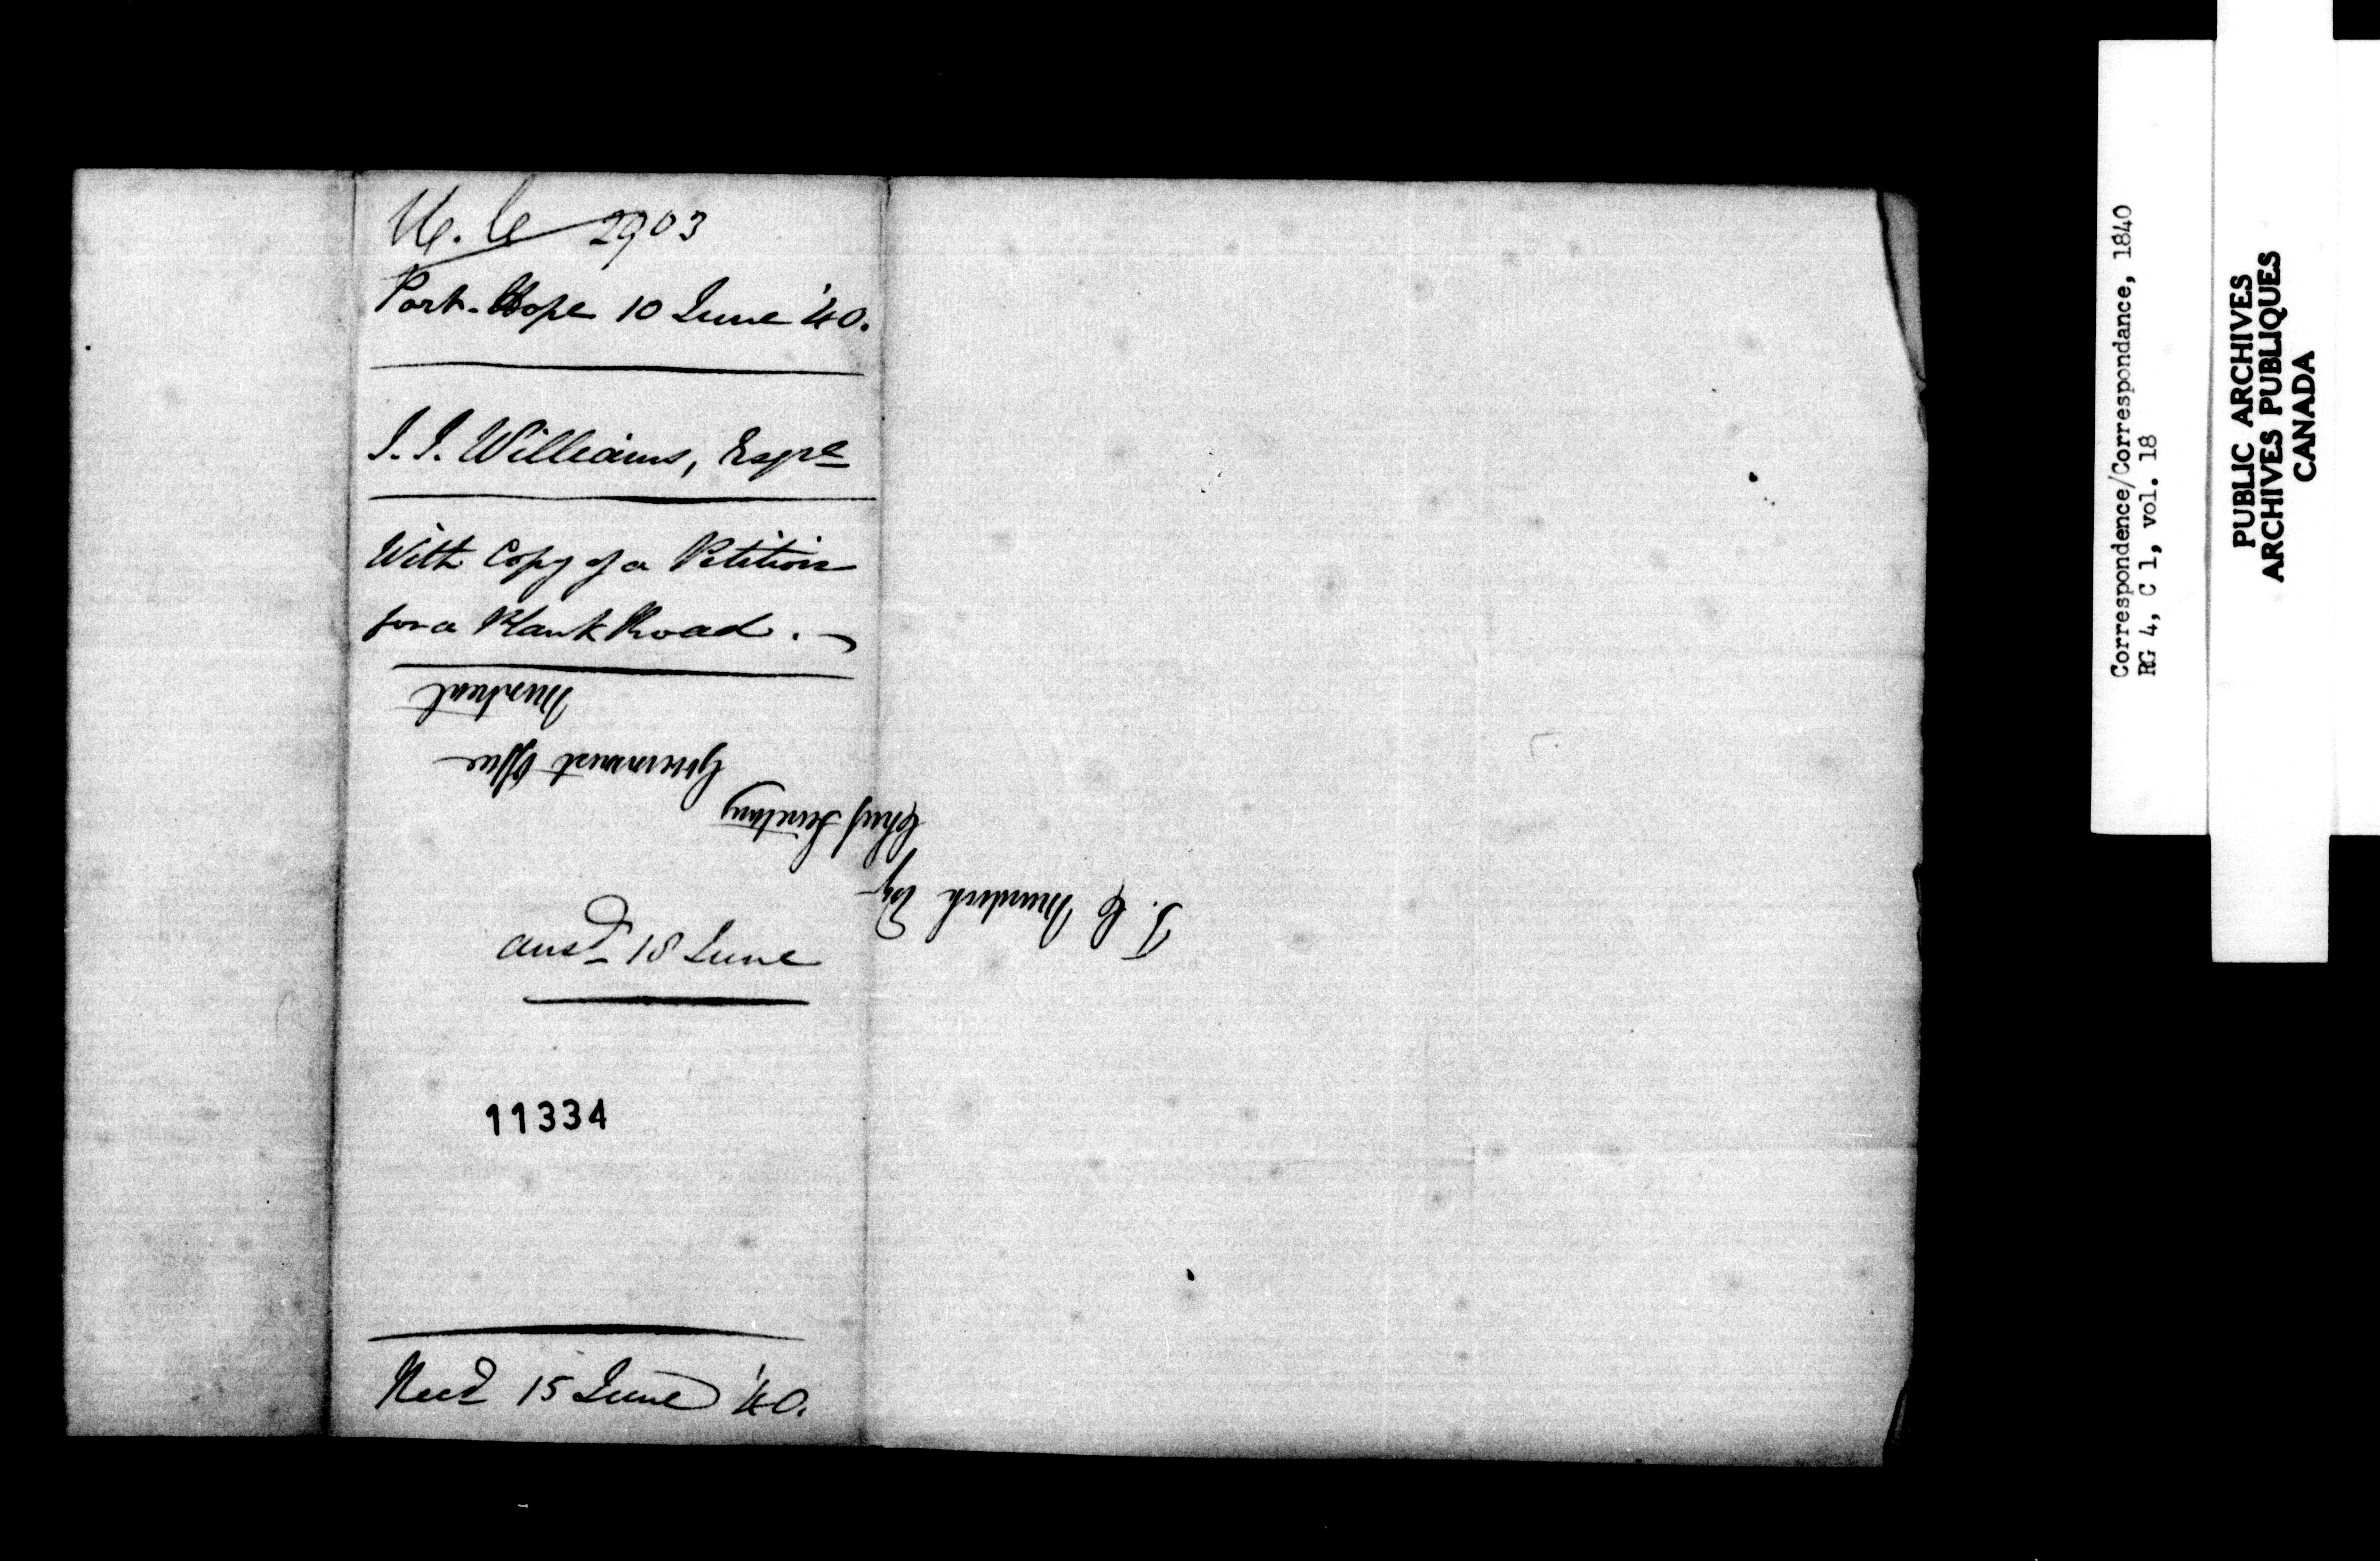 U.C 2903
Port-Hope 10 June '40.
J. J. Williams, Esqre
With Copy of a Petition
for a Plank Road.
T. C Murdoch Esqr
Chief Secretary
Government Office
Montreal
ansd 18 June
11334
Recd 15 June '40.
Correspondence/Correspondance, 1840
RG 4, C 1, vol. 18
PUBLIC ARCHIVES
ARCHIVES PUBLIQUES
CANADA